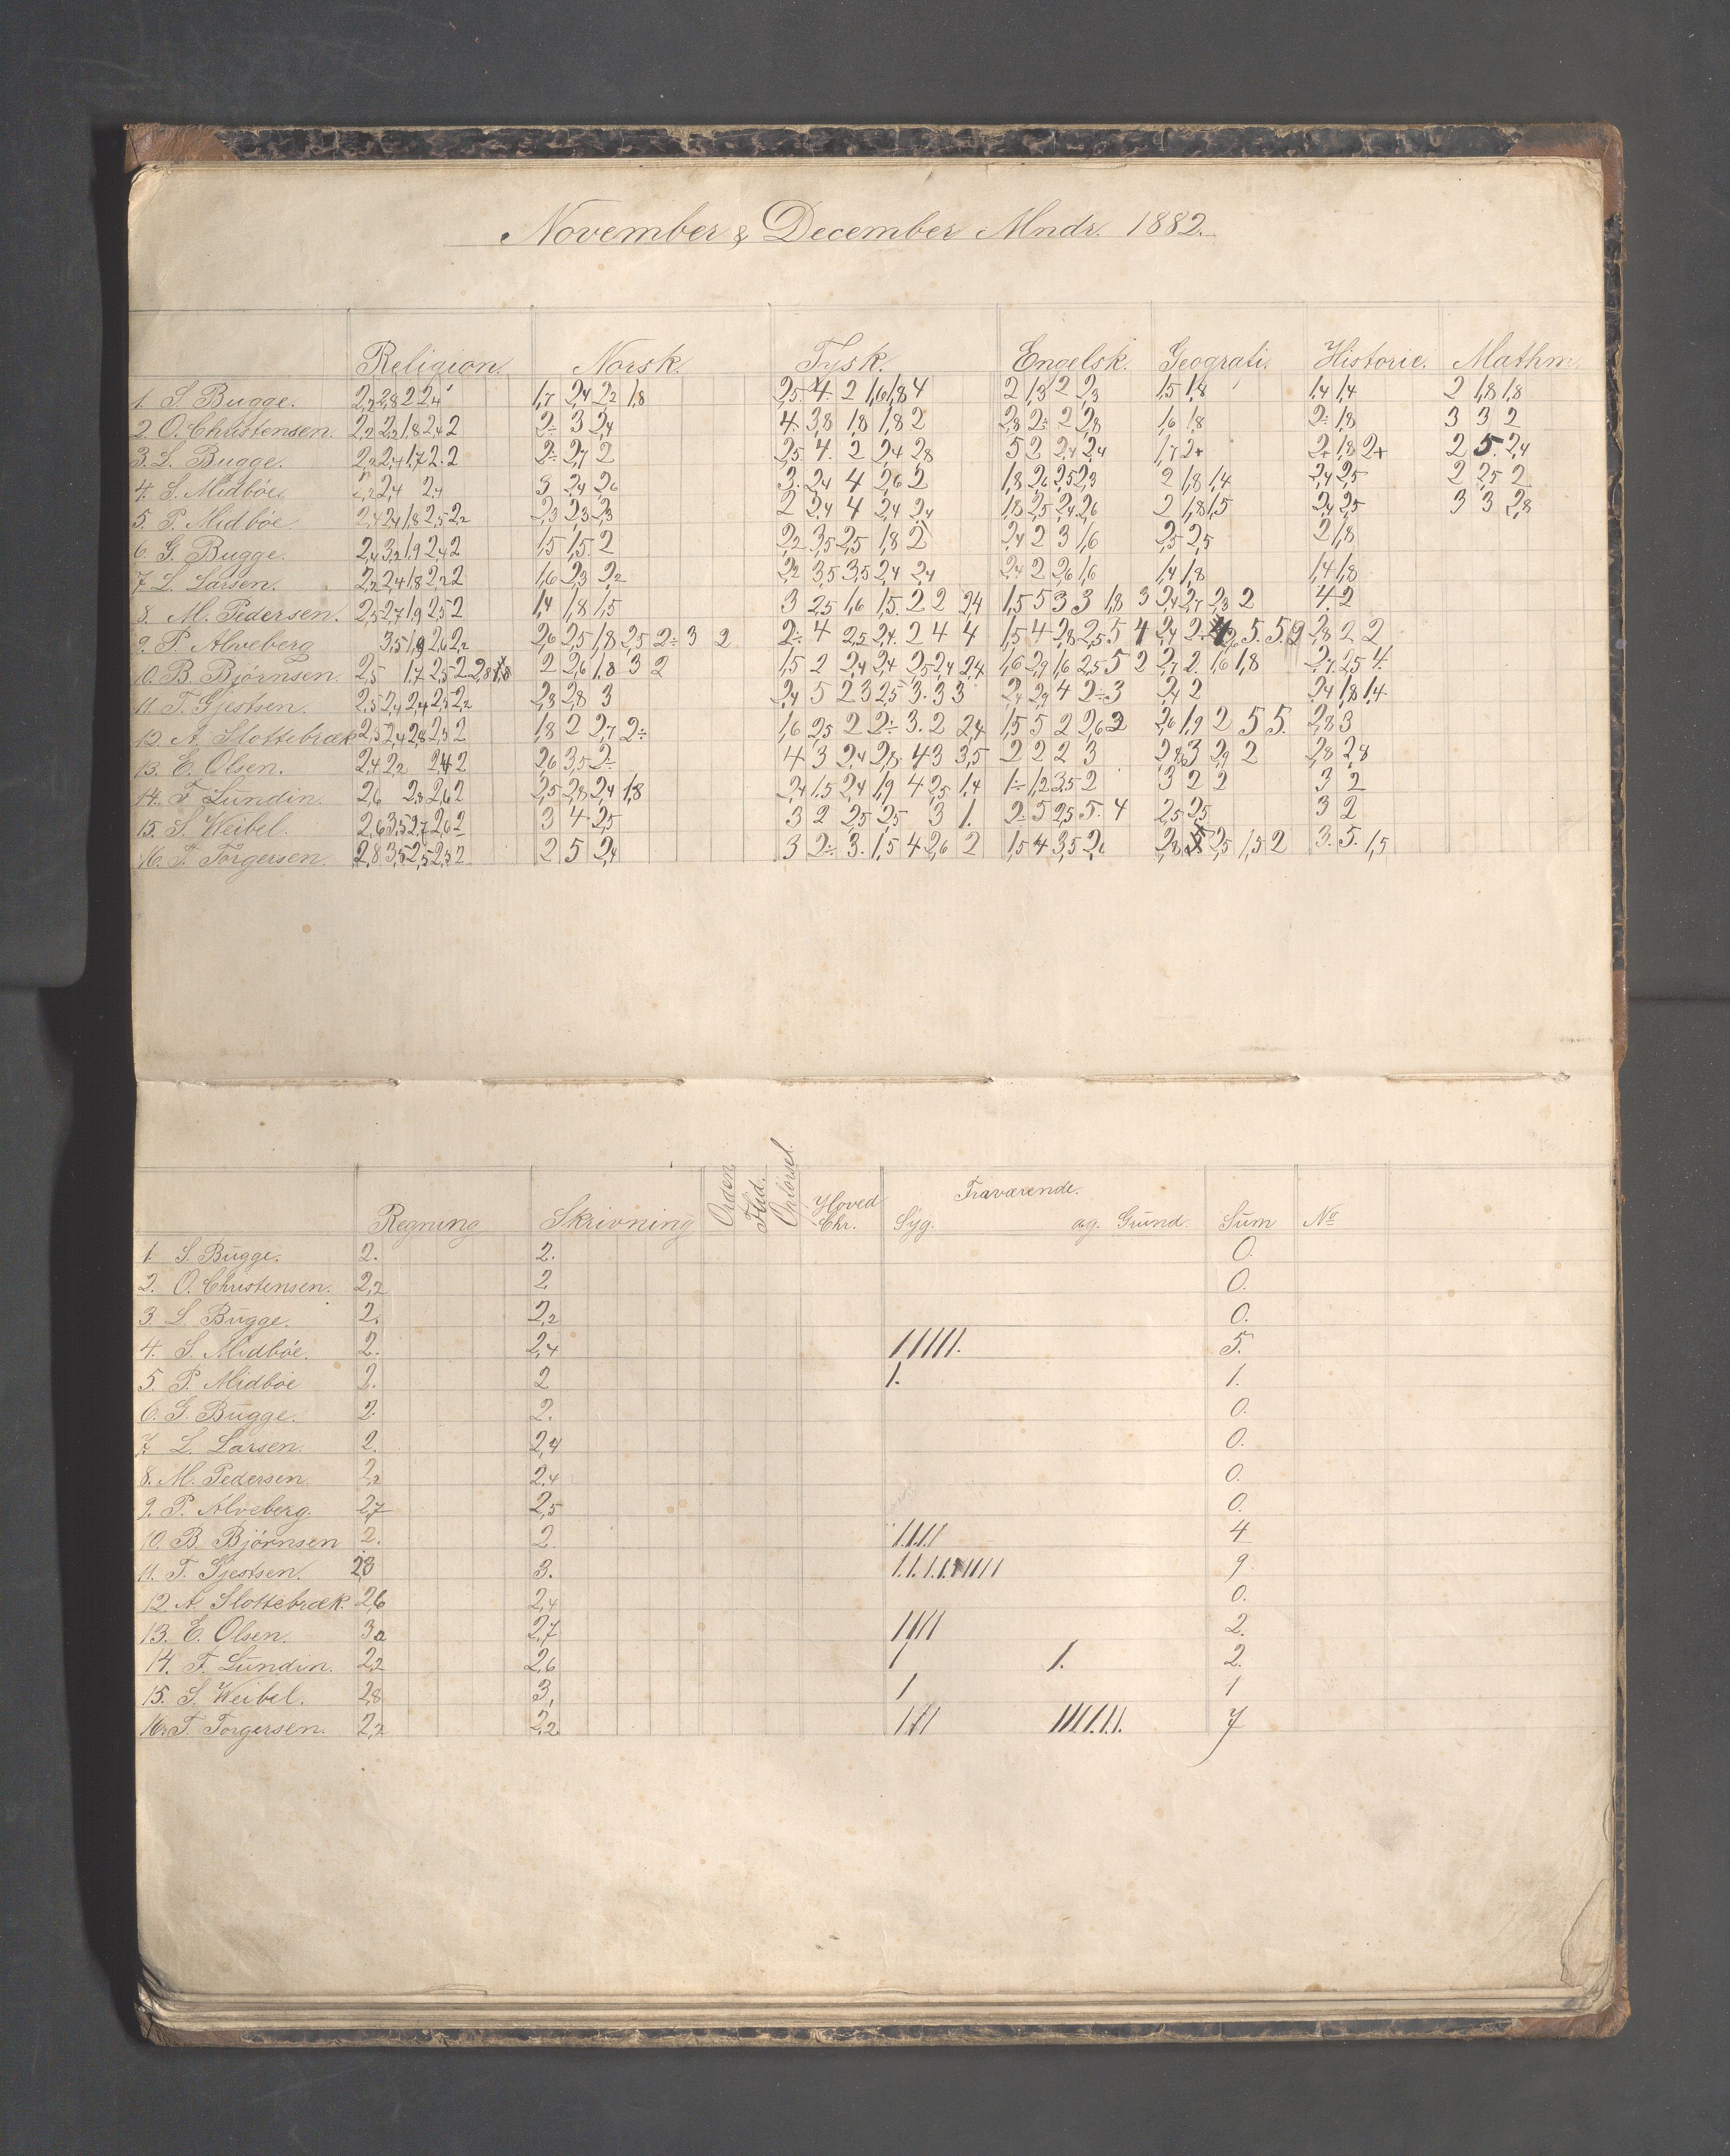 November & December Mndr. 1882.
Religion. Norsk. Tysk. Engelsk. Geografi. Historie. Mathm.
1. S. Bugge. 2,2 2,8 2 2,4 1,7 2,4 2,2 1,8 2,5. 4. 2 1,6 1,8 4 2 1,3 2 2,3 1,5 1,8 1,4 1,4 2 1,8 1,8
2. O. Christensen. 2,2 2,2 1,8 2,4 2 2÷ 3 2,4 4. 3,8 1,8 1,8 2 2,8 2÷ 2 2,8 1,6 1,8 2÷ 1,8 3 3 2
3. L. Bugge. 2,2 2,4 1,7 2.2 2÷ 2,7 2 2,5. 4. 2 2,4 2,8 5 2 2,4 2,4 1,7 2+ 2+ 1,8 2+ 2 5. 2,4
4. S. Midböe. 2,2 2,4 2,4 3 2,4 2,6 3. 2,4 4 2,6 2 1,8 2,6 2,5 2,3 2 1,8 1,4 2,4 2,5 2 2,5 2
5. P. Midböe 2,4 2,4 1,8 2,5 2,2 2,3 2,3 2,3 2 2,4 4 2,4 2,4 1,8 2,5 2,4 2,6 2 1,8 1,5 2,4 2,5 3 3 2,8
6. G. Bugge. 2,4 3,2 1,9 2,4 2 1,5 1,5. 2 2,2 3,5 2,5 1,8 2 2,4 2 3 1,6 2,5 2,5 2 1,8
7. L. Larsen. 2,2 2,4 1,8 2,2 2 1,6 2,3 2,2 2,2 3,5 3,5 2,4 2,4 2,4 2 2,6 1,6 1,4 1,8 1,4 1,8
8. M. Pedersen. 2,5 2,7 1,9 2,5 2 1,4 1,8 1,5 3 2,5 1,6 1,5. 2 2 2,4 1,5 5 3 3 1,8 3 2,4 2,7 2,3 2 4. 2
9. P. Alveberg 3,5 1,9 2,6 2,2 2,6 2,5 1,8 2,5 2÷ 3 2 2÷ 4 2,5 2,4. 2 4 4 1,5 4 2,8 2,5 5 4 2,4 2 5. 5. 2,8 2 2
10. B. Björnsen. 2,5 1,7 2,5 2 2,8 1,8 2 2,6 1,8 3 2 1,5 2 2,4 2,4 2,5 2,4 2,4 1,6 2,9 1,6 2,5 5 2 2,7 2 1,6 1,8 2,7. 2,5 4.
11. T. Gjestsen. 2,5 2,4 2,4 2,5 2,2 2,3 2,8 3 2,4 5 2 3 2,5 3. 3 3 2,4 2,9 4 2÷ 3 2,4 2 2,4 1,8 1,4
12. A. Slottebræk 2,5 2,4 2,8 2,5 2 1,8 2 2,7 2÷ 1,6 2,5 2 2÷ 3. 2 2,4 1,5 5 2 2,6 2 2,6 1,9 2 5 5. 2,8 3
13. E. Olsen. 2,4 2,2 2,4 2 2,6 3,5 2÷ 4 3 2,4 2,8. 4 3 3,5 2 2 2 3 2,8 3 2,9 2 2,8 2,8
14. F. Lündin. 2,6 2,8 2,6 2 2,5 2,8 2,4 1,8 2,4 1,5 2,4 1,9 4 2,5 1,4 1÷ 1,2 3,5 2 3 2 2 3 2
15. S. Weibel. 2,6 3,5 2,7 2,6 2 3 4 2,5 3 2 2,5 2,5 3 1. 2÷ 5 2,5 5. 4 2,5 2,5 3 2
16. T. Torgersen. 2,8 3,5 2,5 2,5 2 2 5 2,4 3 2÷ 3. 1,5 4 2,6 2 1,5 4 3,5 2,6 2,8 5 2,5 1,5 2 3. 5. 1,5
Regning Skrivning Orden Flid. Opførsel. Hoved Chr. Fraværende. Syg. ag. Grund Sum No
1. S. Bügge. 2. 2. 0.
2. O. Christensen. 2,2 2 0.
3. L. Bügge. 2. 2,2 0.
4. S. Midböe. 2. 2,4 11111. 5.
5. P. Midböe 2. 2 1. 1.
6. G. Bügge. 2. 2. 0.
7. L. Larsen. 2. 2,4 0.
8. M. Pedersen. 2,2 2,4 0.
9. P. Alveberg. 2,7 2,5 0.
10. B. Björnsen 2. 2. 1111 4
11. T. Gjestsen. 2,3 3. 9
12. A. Slottebræk. 2,6 2,4 0.
13. E. Olsen. 3 2,7 1111 2.
14. F. Lündin. 2,2 2,6 1 1. 2.
15. S. Weibel. 2,8 3, 1 1
16. T. Torgersen. 2,2 2,2 111 1111.1.1. 7